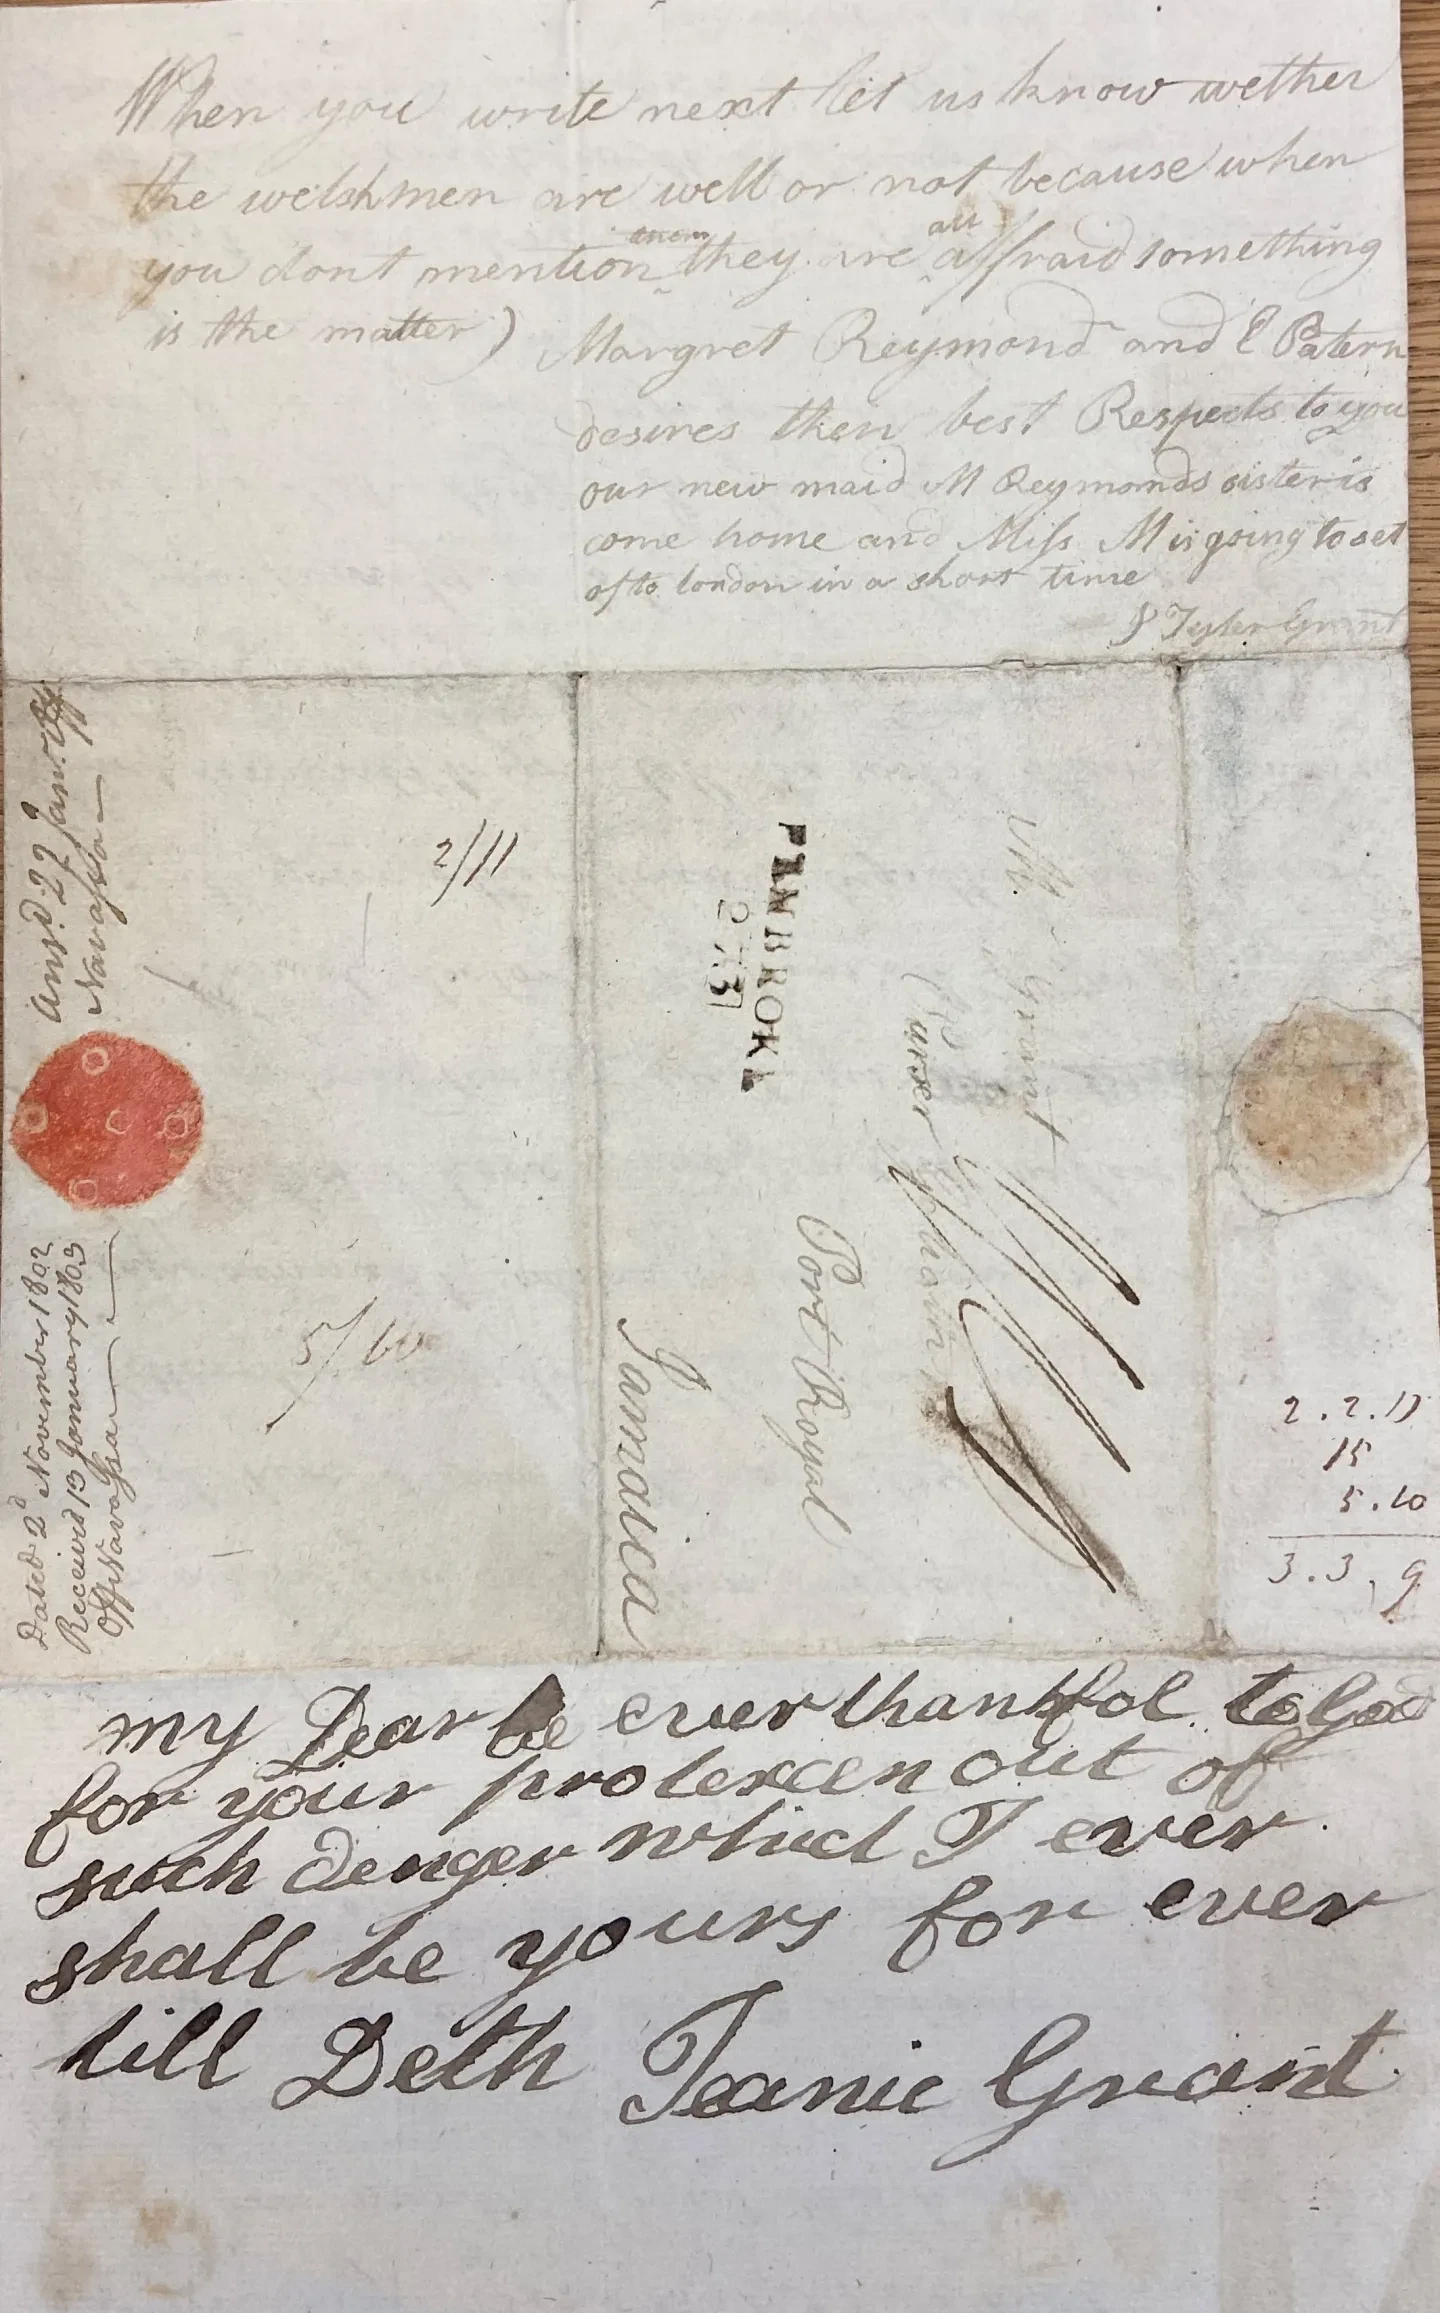 When you write next let us know wether
the welshmen are well or not because when
you dont mention them they are all affraid something
is the matter)
Margret Reymond and E Patern
desires then best Respects to you
our new maid M Reymonds sister is
come home and Miss M is going to set
of to london in a short time
Tyler Grant
Ansd. 27 Jan.
Navassa
2/11
Dated 2d November 1802
Received 13 January 1803
Off Navassa
5/10
PEMBROKE
Mr Grant
Purser
Port Royal
Jamaica
2.2.11
15
5.10
3.3.9
my Dear be ever thankfol to God
for your protexcen out of
such denger which I ever
shall be yours for ever
till Deth Jeanie Grant